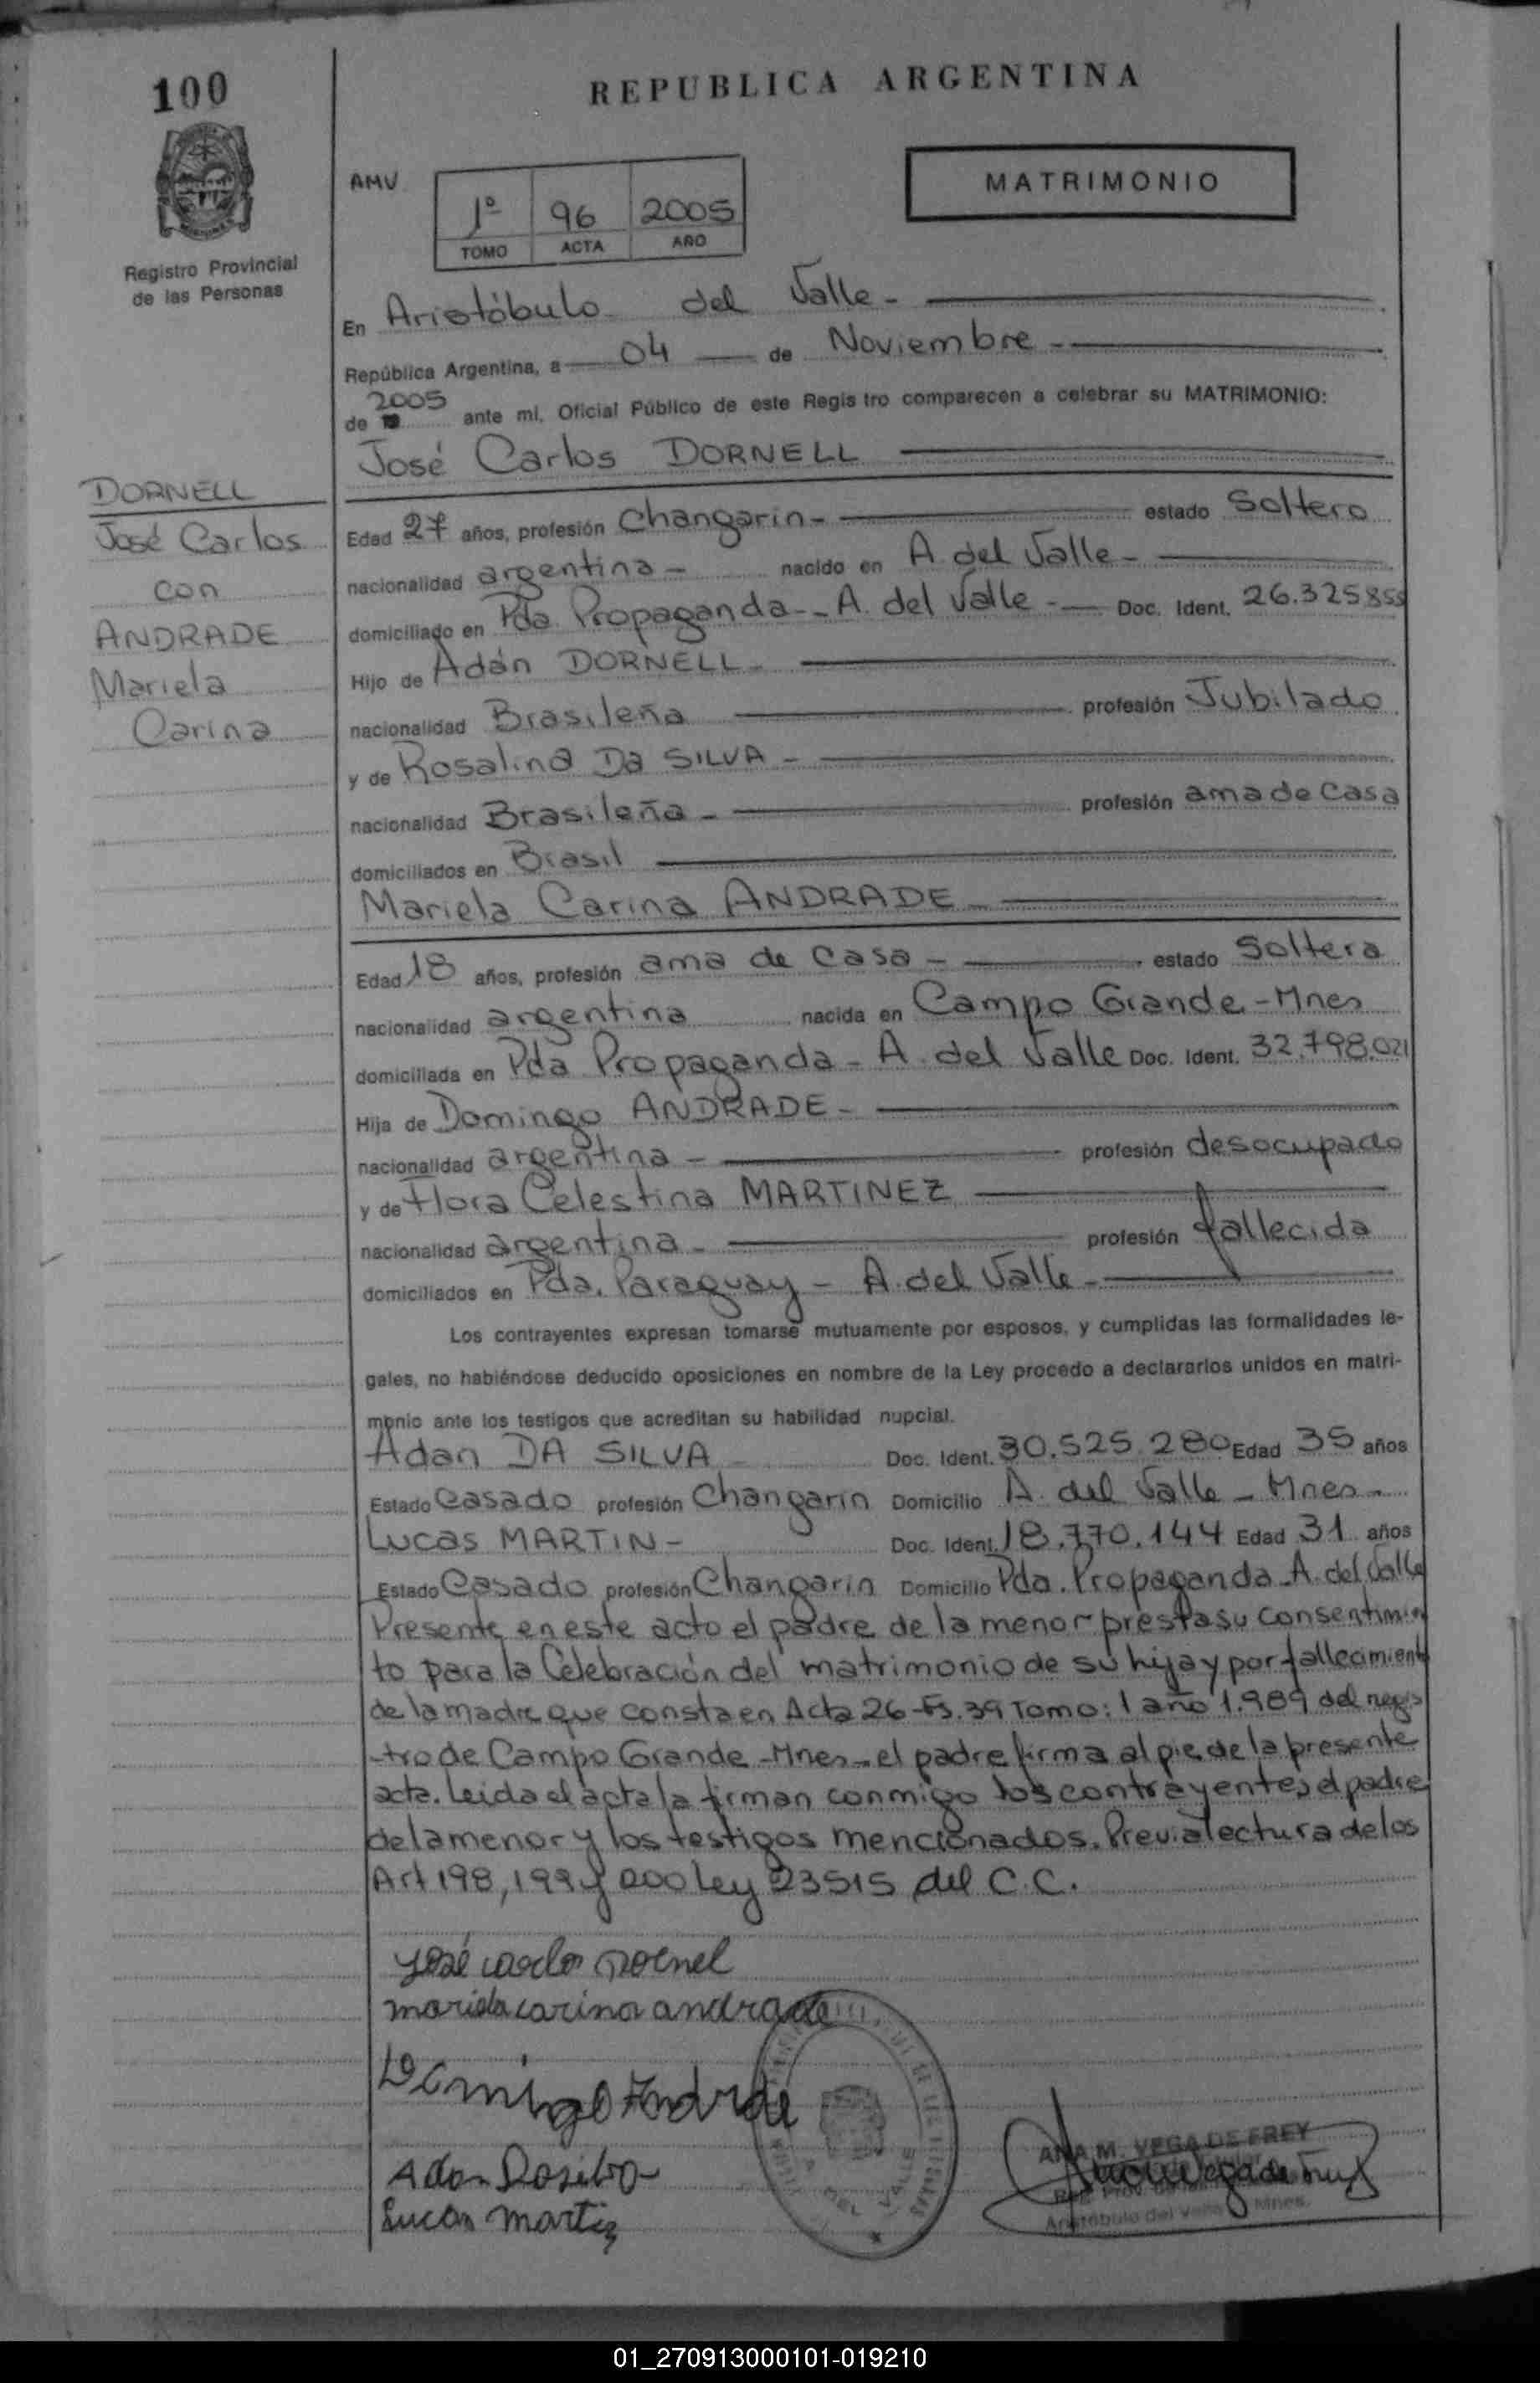 100
REPUBLICA ARGENTINA
AMV
1º 96 2005
TOMO ACTA AÑO
MATRIMONIO
Registro Provincial
de las Personas
En Aristóbulo del Valle -
República Argentina, a 04 de Noviembre -
de 2005 ante mi, Oficial Público de este Registro comparecen a celebrar su MATRIMONIO:
José Carlos DORNELL
DORNELL
José Carlos
con
ANDRADE
Mariela
Carina
Edad 27 años, profesión Changarin - estado Soltero
nacionalidad argentina - nacido en A. del Valle -
domiciliado en Pda. Propaganda - A. del Valle - Doc. Ident. 26.325.855
Hijo de Adán DORNELL -
nacionalidad Brasileña profesión Jubilado
y de Rosalina Da SILVA -
nacionalidad Brasileña - profesión ama de Casa
domiciliados en Brasil
Mariela Carina ANDRADE -
Edad 18 años, profesión ama de Casa - estado Soltera
nacionalidad argentina nacida en Campo Grande - Mnes
domiciliada en Pda Propaganda - A. del Valle Doc. Ident. 32.798.021
Hija de Domingo ANDRADE -
nacionalidad argentina - profesión desocupado
y de Flora Celestina MARTINEZ
nacionalidad argentina - profesión fallecida
domiciliados en Pda. Paraguay - A. del Valle -
Los contrayentes expresan tomarse mutuamente por esposos, y cumplidas las formalidades le-
gales, no habiéndose deducido oposiciones en nombre de la Ley procedo a declararlos unidos en matri-
monio ante los testigos que acreditan su habilidad nupcial.
Adan DA SILVA - Doc. Ident. 30.525.280 Edad 35 años
Estado Casado profesión Changarin Domicilio A. del Valle - Mnes -
Lucas MARTIN - Doc. Ident. 18.770.144 Edad 31 años
Estado Casado profesión Changarin Domicilio Pda. Propaganda - A. del Valle
Presente en este acto el padre de la menor presta su consentimien
to para la Celebración del matrimonio de su hija y por fallecimiento
de la madre que consta en Acta 26 - Fs. 39 Tomo: 1 año 1.989 del regis
-tro de Campo Grande - Mnes - el padre firma al pie de la presente
acta. Leida el acta la firman conmigo los contrayentes, el padre
de la menor y los testigos mencionados. Previa lectura de los
Art 198, 199 y 200 Ley 23515 del C.C.
José carlos Dornel
mariela carina andrade
Domingo Andrade
Adan Dasilva
Lucas Martin
ANA M. VEGA DE FREY
Aristóbulo del Valle Mnes.
DEL VALLE
01_270913000101-019210